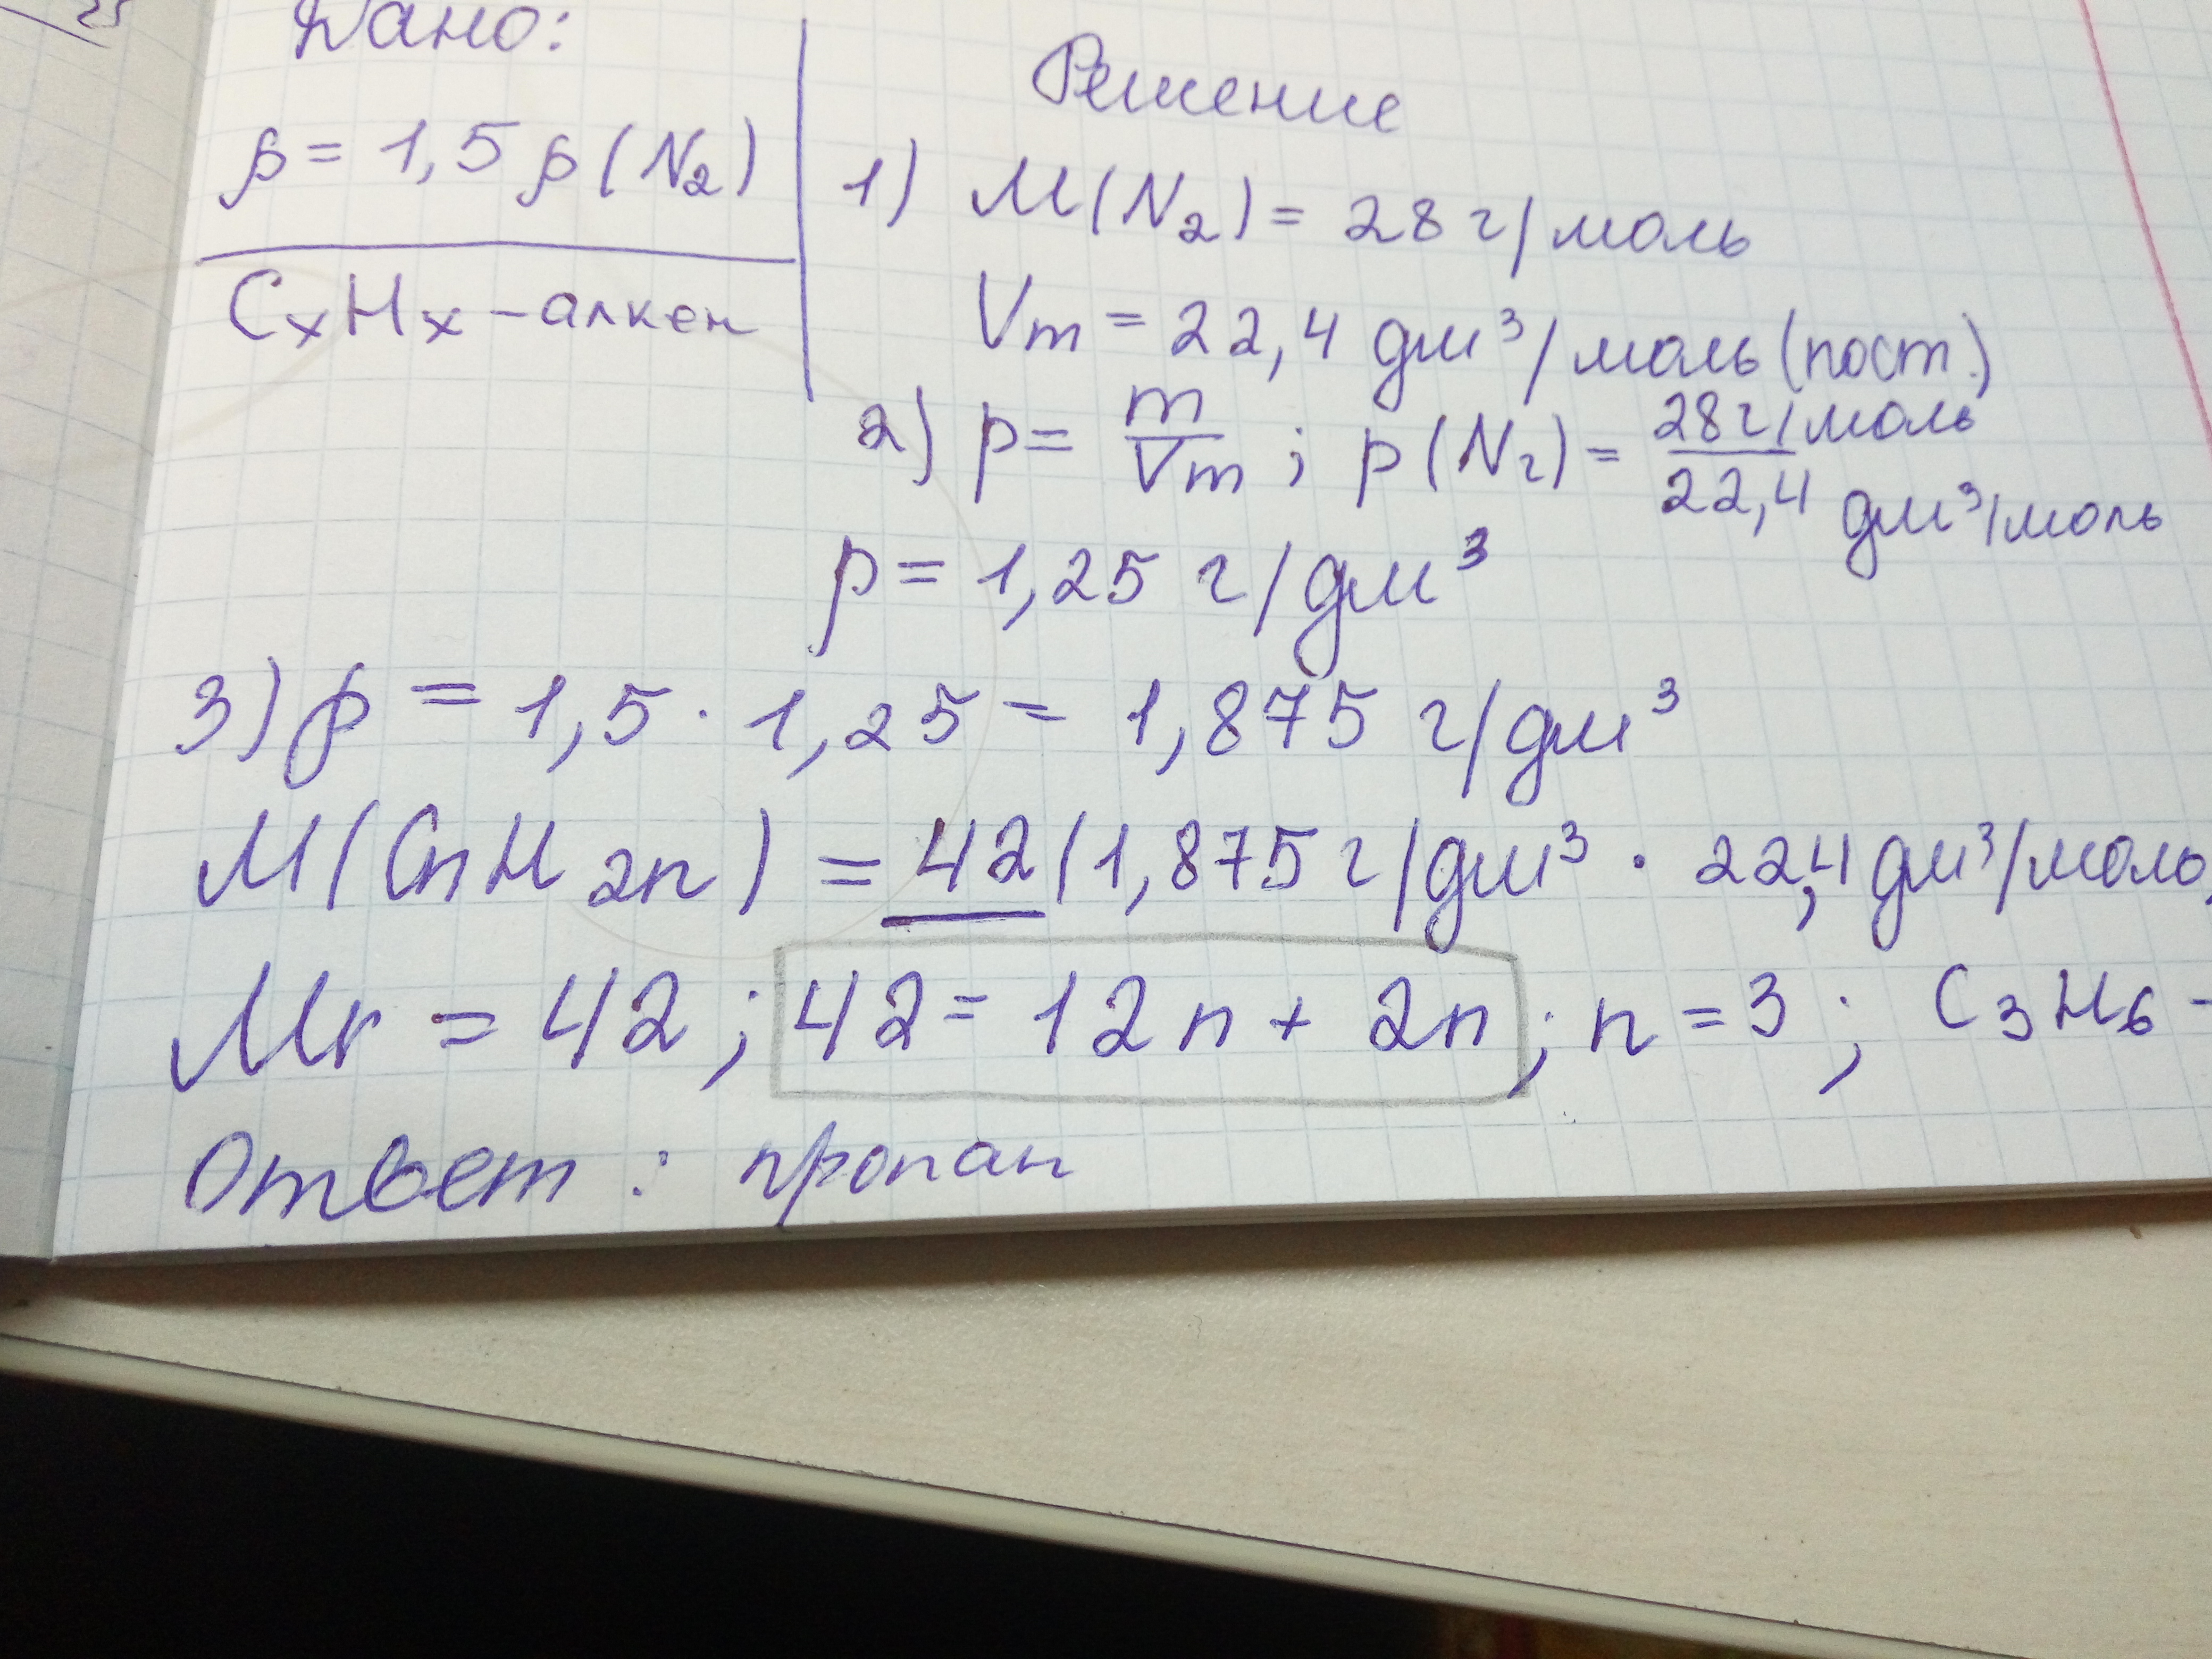 25
Дано:
ρ = 1,5 ρ (N₂)
CₓHₓ – алкен
Решение
1) M(N₂) = 28 г/моль
Vm = 22,4 дм³/моль (пост.)
2) p = m/Vm ; p(N₂) = 28 г/моль / 22,4 дм³/моль
p = 1,25 г/дм³
3) ρ = 1,5 · 1,25 = 1,875 г/дм³
M(CnH2n) = 42 (1,875 г/дм³ · 22,4 дм³/моль)
Mr = 42 ; 42 = 12n + 2n ; n = 3 ; C₃H₆ –
Ответ : пропан